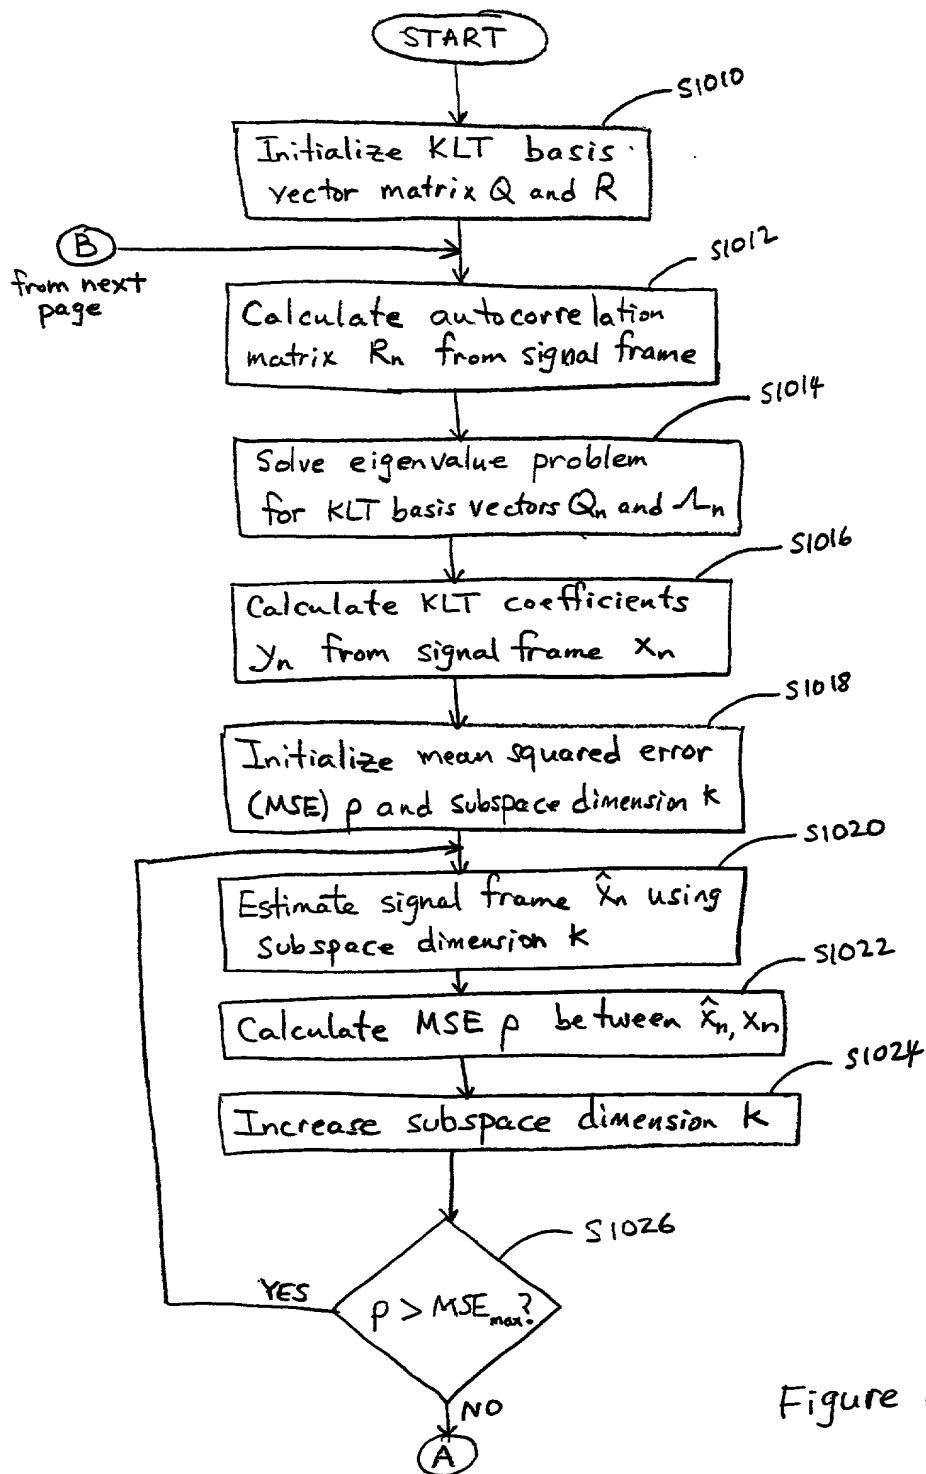 START
S1010
Initialize KLT basis
vector matrix Q and R
B
from next
page
S1012
Calculate autocorrelation
matrix Rn from signal frame
S1014
Solve eigenvalue problem
for KLT basis vectors Qn and Λn
S1016
Calculate KLT coefficients
yn from signal frame xn
S1018
Initialize mean squared error
(MSE) ρ and subspace dimension k
S1020
Estimate signal frame x̂n using
subspace dimension k
S1022
Calculate MSE ρ between x̂n, xn
S1024
Increase subspace dimension k
S1026
YES
ρ > MSEmax?
NO
A
Figure